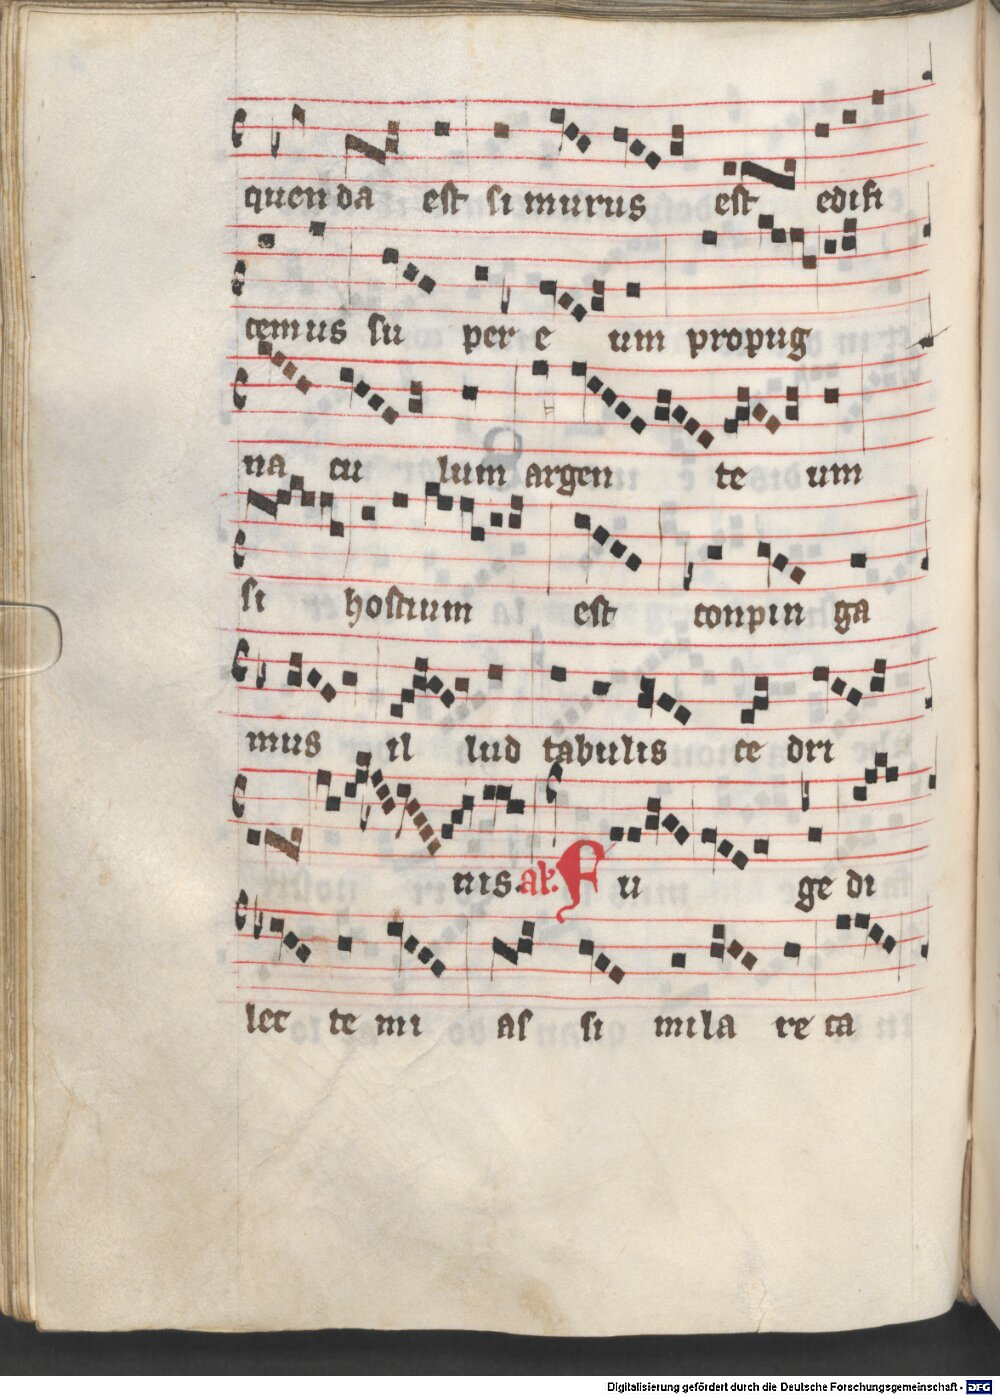 quen da est si murus est edifi
cemus su per e um propug
na cu lum argen te um
si hostium est conpin ga
mus il lud tabulis ce dri
nis. ar. Fu ge di
lec te mi as si mila re ca
Digitalisierung gefördert durch die Deutsche Forschungsgemeinschaft - DFG